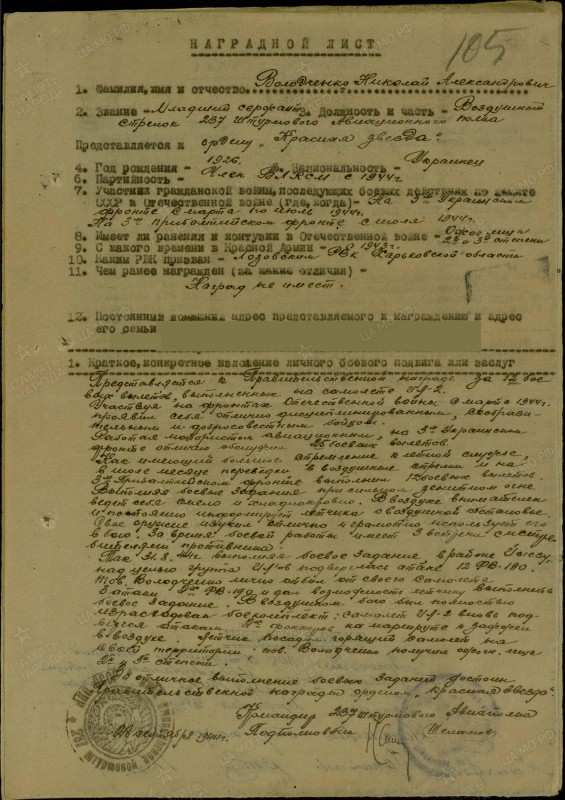 105
НАГРАДНОЙ ЛИСТ
1. Фамилия, имя и отчество Володченко Николай Александрович
2. Звание - Младший сержант 3. Должность и часть - Воздушный
стрелок 237 Штурмового Авиационного полка
Представляется к ордену "Красная звезда"
4. Год рождения - 1926. 5. Национальность - Украинец
6. Партийность - Член ВЛКСМ с 1944г
7. Участник гражданской войны, последующих боевых действиях по защите
СССР в Отечественной войне (где, когда) - На 3м Украинском
фронте с марта по июль 1944г.
На 3м прибалтийском фронте с июля 1944г.
8. Имеет ли ранения и контузии в Отечественной войне - Ожог лица
2й и 3й степени
9. С какого времени в Красной Армии - 1943г.
10. Каким РВК призван - Лозовским РВК Харьковской области
11. Чем ранее награжден (за какие отличия) -
Наград не имеет.
12. Постоянный домашний адрес представляемого к награждению и адрес
его семьи
1. Краткое, конкретное изложение личного боевого подвига или заслуг
Представляется к Правительственной награде за 12 бое
вых вылетов, выполненных на самолете ИЛ-2.
Участвуя на фронтах Отечественной войны с марта 1944г.
проявил себя отлично дисциплинированным, сообрази
тельным и добросовестным бойцом.
Работая мотористом авиационным, на 3м Украинском
фронте отлично обслужил боевых вылетов.
Как имеющий большое стремление к летной службе,
в июле месяце переведен в воздушные стрелки и на
3м Прибалтийском фронте выполнил 12 боевых вылетов.
Выполняя боевые задания при сильном зенитном огне
ведет себя смело и хладнокровно. В воздухе внимателен
и постоянно информирует летчика о воздушной обстановке.
Свое оружие изучил отлично и грамотно использует его
в бою. За время боевой работы имеет 3 встречи с истре
бителями противника.
Так 31.8. выполняя боевое задание в районе
над целью группа ИЛ-ов подверглась атаке 12 ФВ-190.
Тов. Володченко лично отбил от своего самолета
атаки ФВ-190 и дал возможность летчику выполнить
боевое задание. В воздушном бою был полностью
израсходован боекомплект. Самолет ИЛ-2 вновь под
вергся атакам фоккеров на маршруте и загорелся
в воздухе. Летчик посадил горящий самолет на
своей территории. тов. Володченко получил ожоги лица
2й и 3й степени.
За отличное выполнение боевых заданий достоин
Правительственной награды орденом "Красная Звезда".
Командир 237 Штурмового Авиаполка
Подполковник
сентября 1944г.